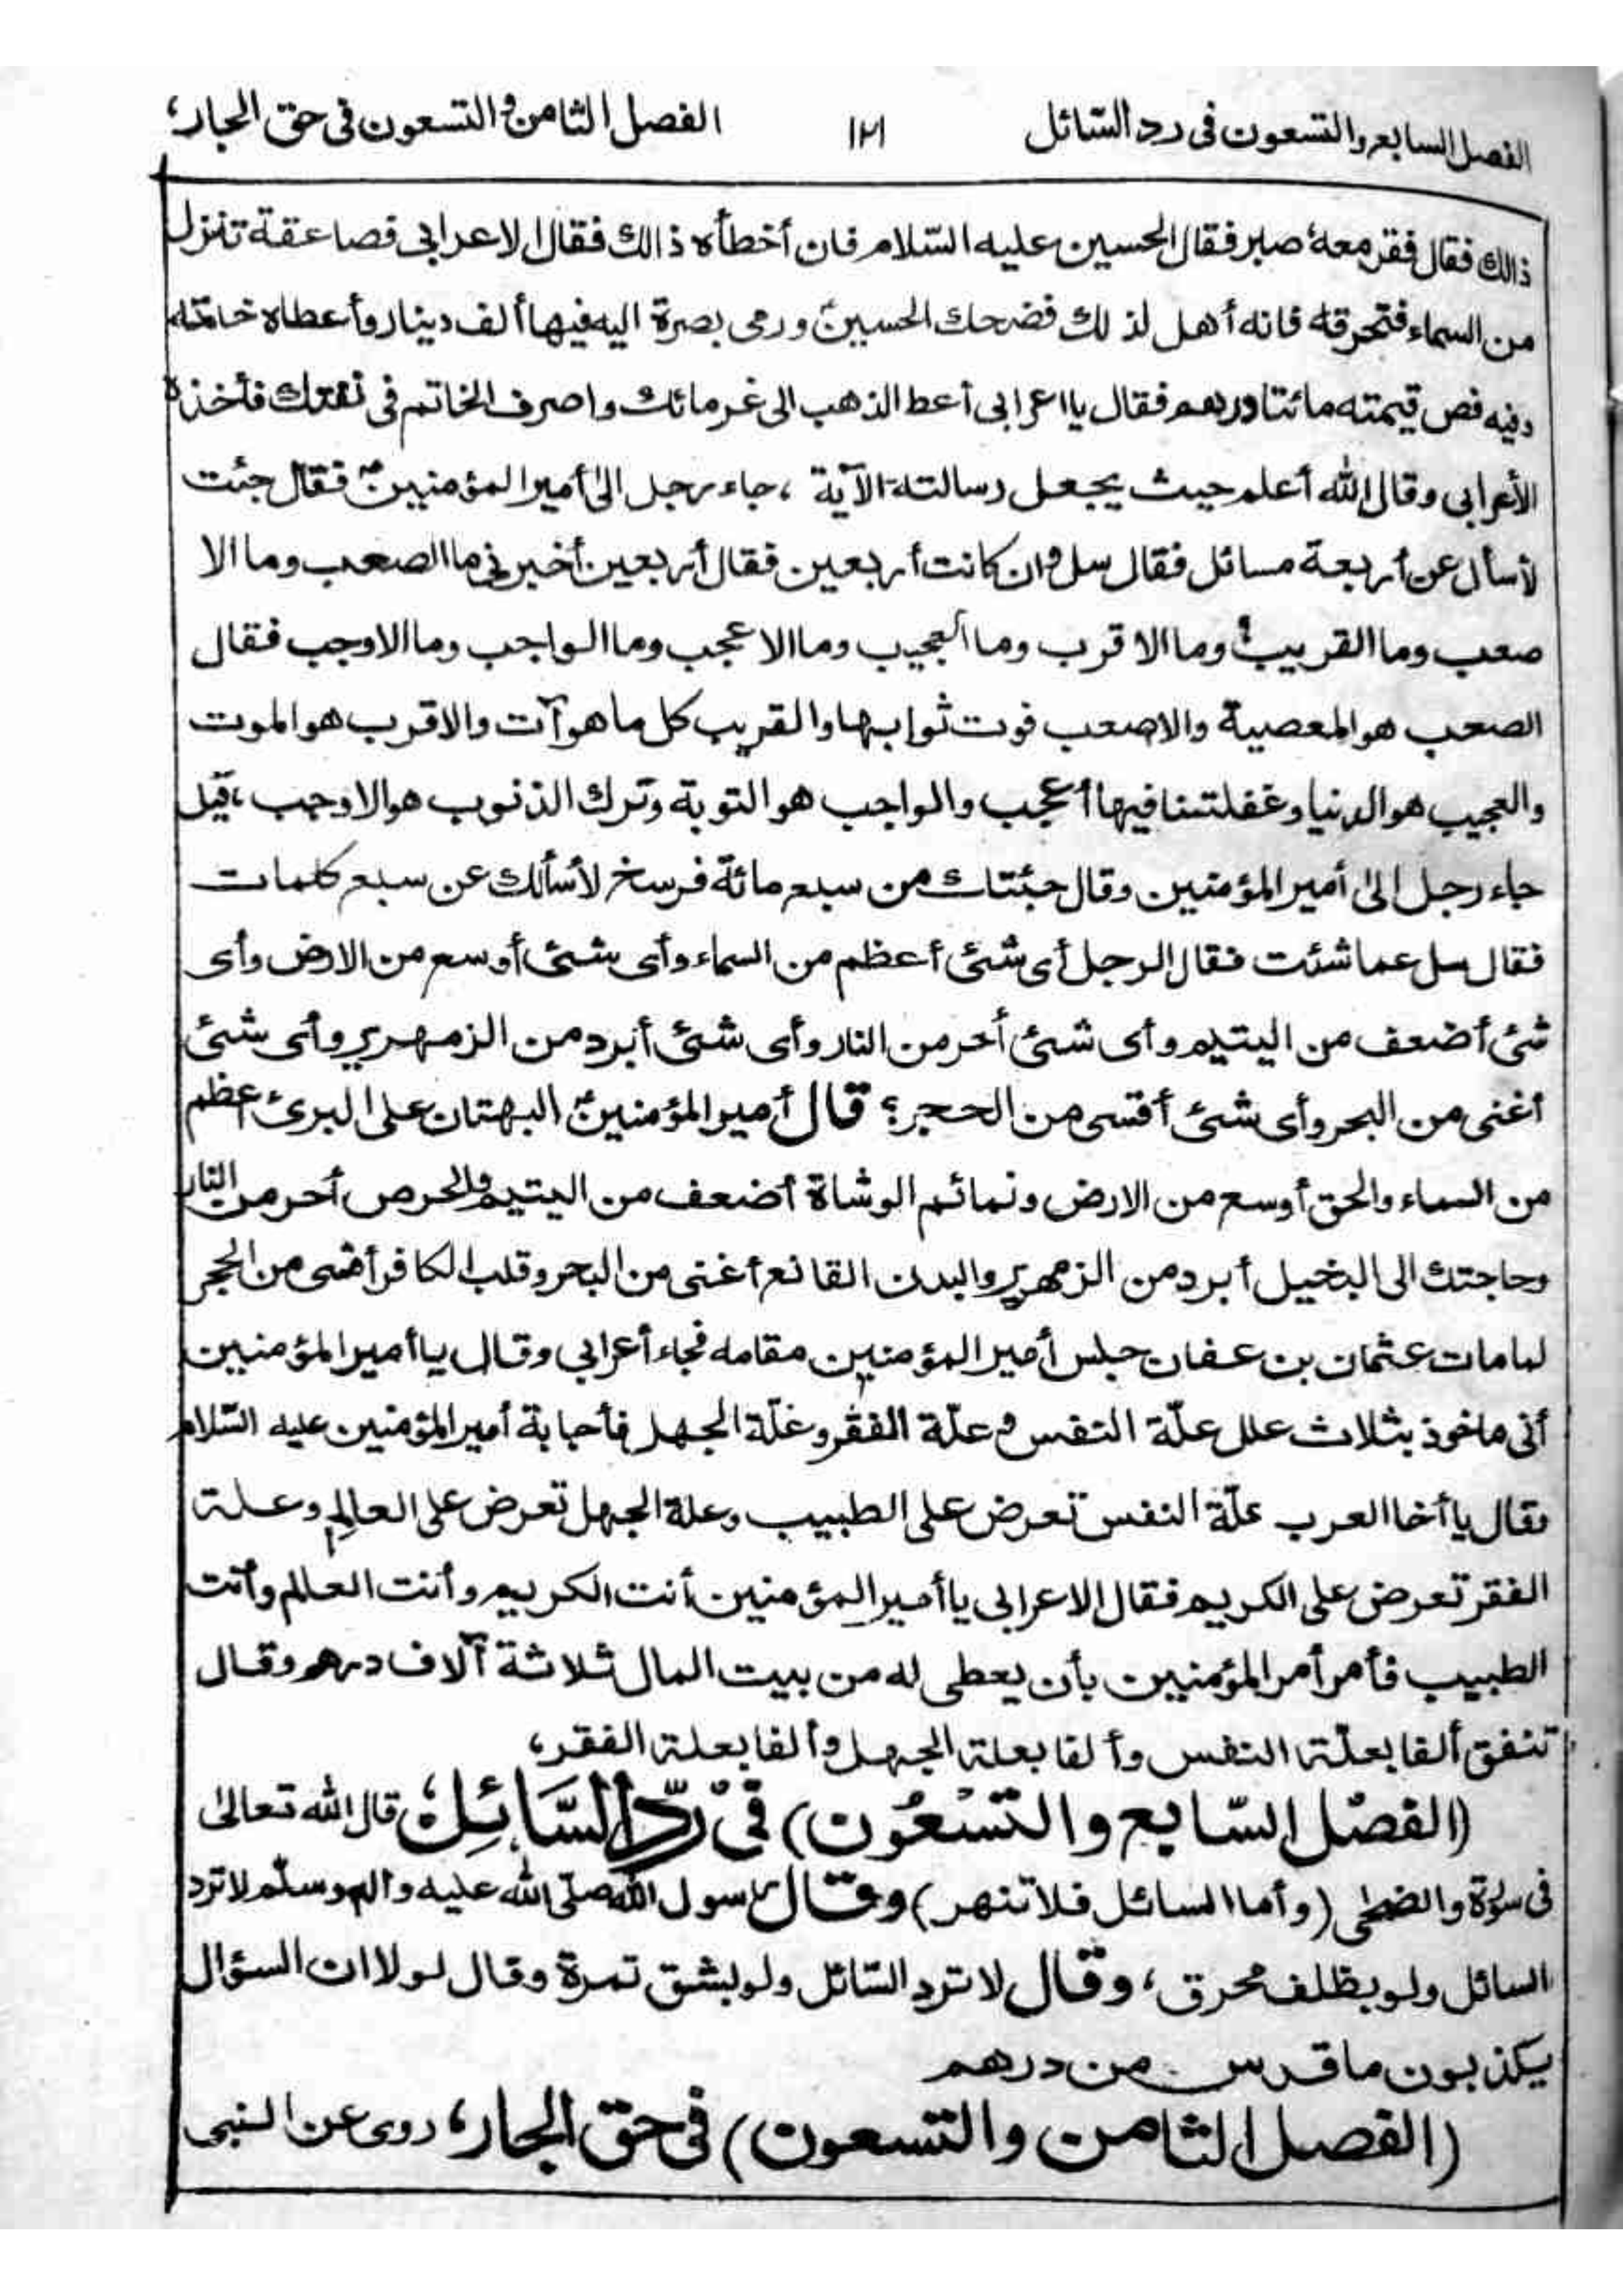 الفصل السابع والتسعون فى رد السّائل ١٢١ الفصل الثامن والتسعون فى حق الجار،
ذالك فقال فقر معه صبر فقال الحسين عليه السّلام فان أخطأه ذالك فقال الاعرابى فصاعقة تنزل
من السماء فتحرقه فانه أهل لذلك فضحك الحسينؑ ورمى بصرة اليه فيها ألف دينار وأعطاه خاتمه
وفيه فص قيمته مائتا درهم فقال يااعرابى أعط الذهب الى غرمائك واصرف الخاتم فى نفقتك فأخذه
الأعرابى وقال الله أعلم حيث يجعل رسالته الآية ، جاء رجل الى أمير المؤمنينؑ فقال جئت
لأسأل عن أربعة مسائل فقال سل وان كانت أربعين فقال أربعين أخبرنى ما الصعب وما الا
صعب وما القريب وما الاقرب وما العجيب وما الاعجب وما الواجب وما الاوجب فقال
الصعب هو المعصية والاصعب فوت ثوابها والقريب كل ما هو آت والاقرب هو الموت
والعجيب هو الدنيا وغفلتنا فيها أعجب والواجب هو التوبة وترك الذنوب هو الاوجب ، قيل
جاء رجل الى أمير المؤمنين وقال جئتك من سبع مائة فرسخ لأسألك عن سبع كلمات
فقال سل عما شئت فقال الرجل أى شئ أعظم من السماء وأى شئ أوسع من الارض وأى
شئ أضعف من اليتيم وأى شئ أحر من النار وأى شئ أبرد من الزمهرير وأى شئ
أغنى من البحر وأى شئ أقسى من الحجر؟ قال أمير المؤمنينؑ البهتان على البرئ اعظم
من السماء والحق أوسع من الارض ونمائم الوشاة أضعف من اليتيم والحرص أحر من النار
وحاجتك الى البخيل أبرد من الزمهرير والبدن القانع أغنى من البحر وقلب الكافر أقسى من الحجر
لما مات عثمان بن عفان جلس أمير المؤمنين مقامه فجاء أعرابى وقال يا أمير المؤمنين
أنى ماخوذ بثلاث علل علّة النفس وعلّة الفقر وعلّة الجهل فأجابة أمير المؤمنين عليه السّلام
وقال يا أخا العرب علّة النفس تعرض على الطبيب وعلة الجهل تعرض على العالم وعلة
الفقر تعرض على الكريم فقال الاعرابى يا أمير المؤمنين أنت الكريم وأنت العالم وأنت
الطبيب فأمر أمر المؤمنين بأن يعطى له من بيت المال ثلاثة آلاف درهم وقال
تنفق ألفا بعلّة النفس وألفا بعلة الجهل وألفا بعلة الفقر،
(الفصل السّابع والتّسعُون) فى ردّ السَّائِل، قال الله تعالى
فى سورة والضحٰى (وأما السائل فلا تنهر) وقال رسول الله صلّى الله عليه واله وسلّم لا ترد
السائل ولو بظلف محرق، وقال لا ترد السّائل ولو بشق تمرة وقال لولا ان السؤال
يكذبون ما قدس من درهم
(الفصل الثامن والتسعون) فى حق الجار، روى عن النبى